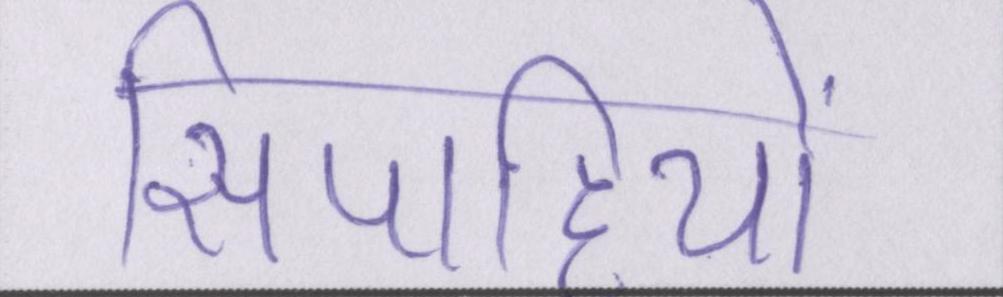 सिपाहियों